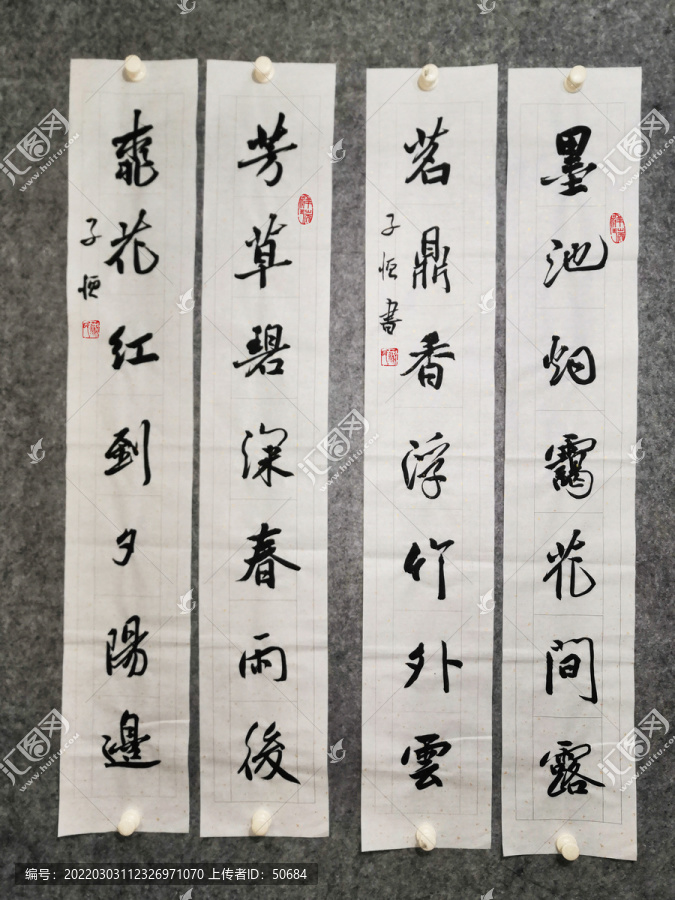 墨池烟靄花間露
茗鼎香浮竹外雲
子恒書
芳草碧深春雨後
桃花紅到夕陽邊
子恒
汇图网
www.huitu.com
编号：20220303112326971070 上传者ID：50684